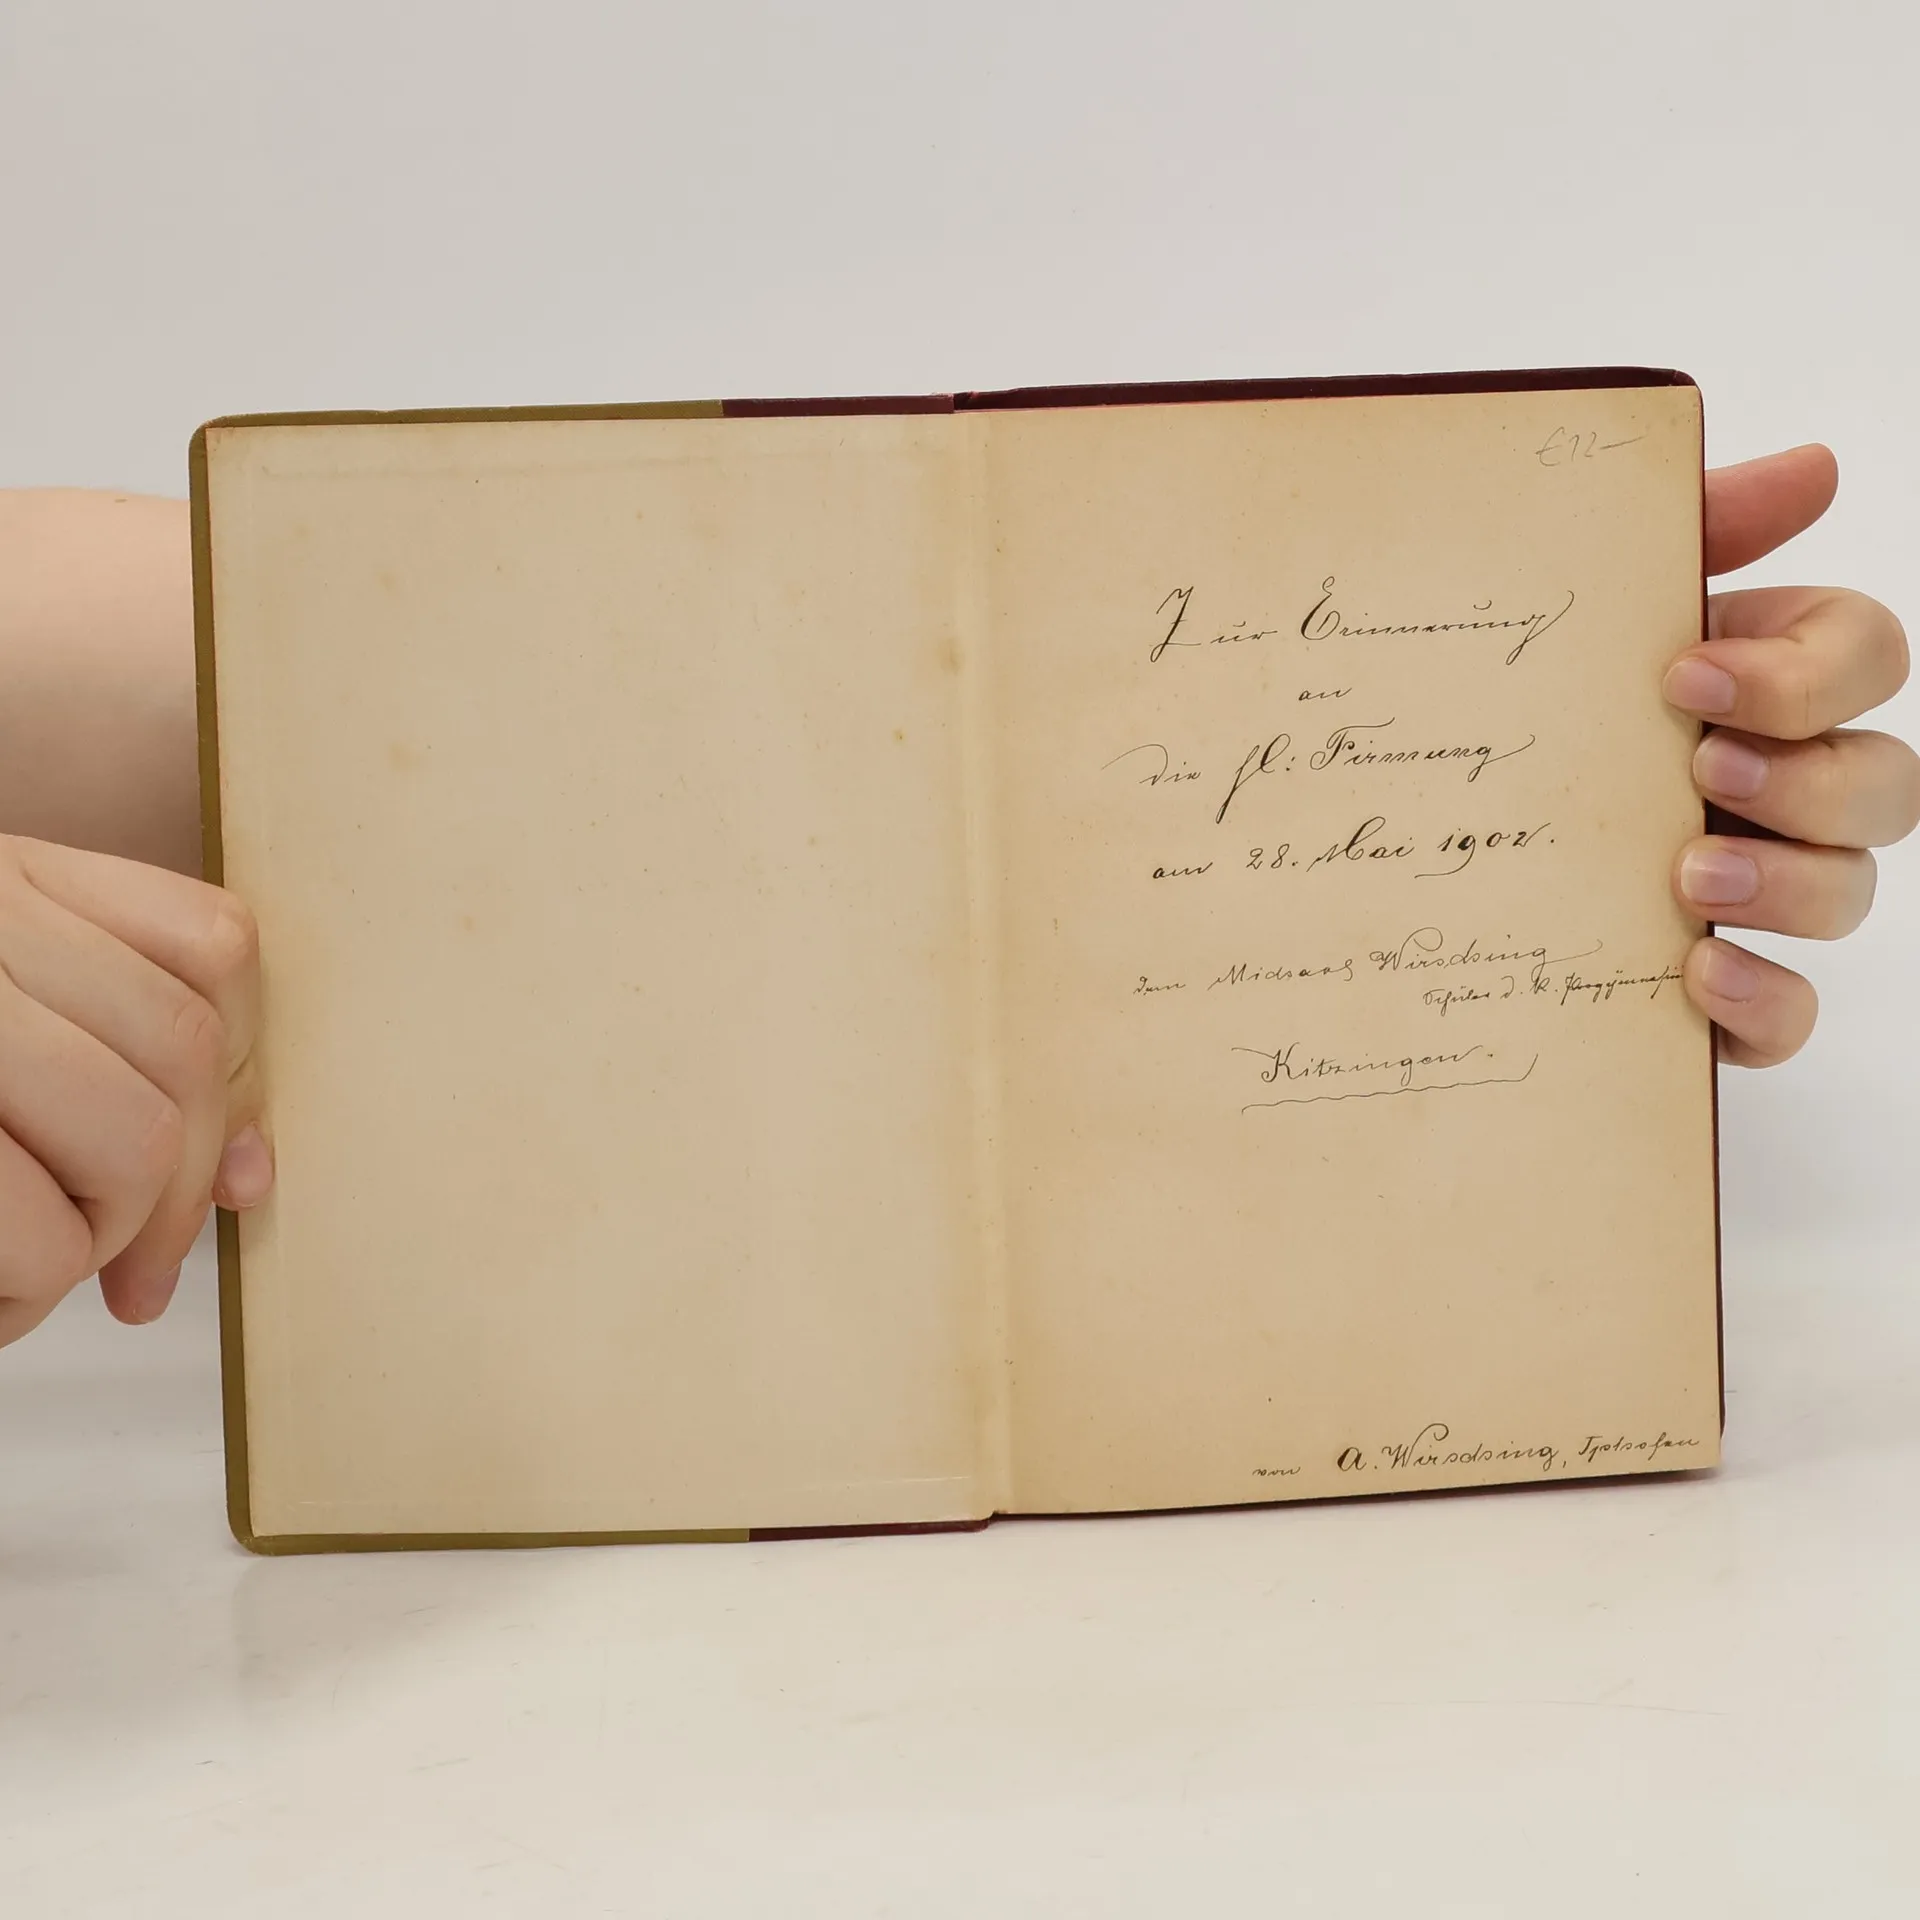 €12–
Zur Erinnerung
an
die hl: Firmung
am 28. Mai 1902.
dem Michael Wirsching
Schüler d. K. Progymnasiums
Kitzingen.
von A. Wirsching,